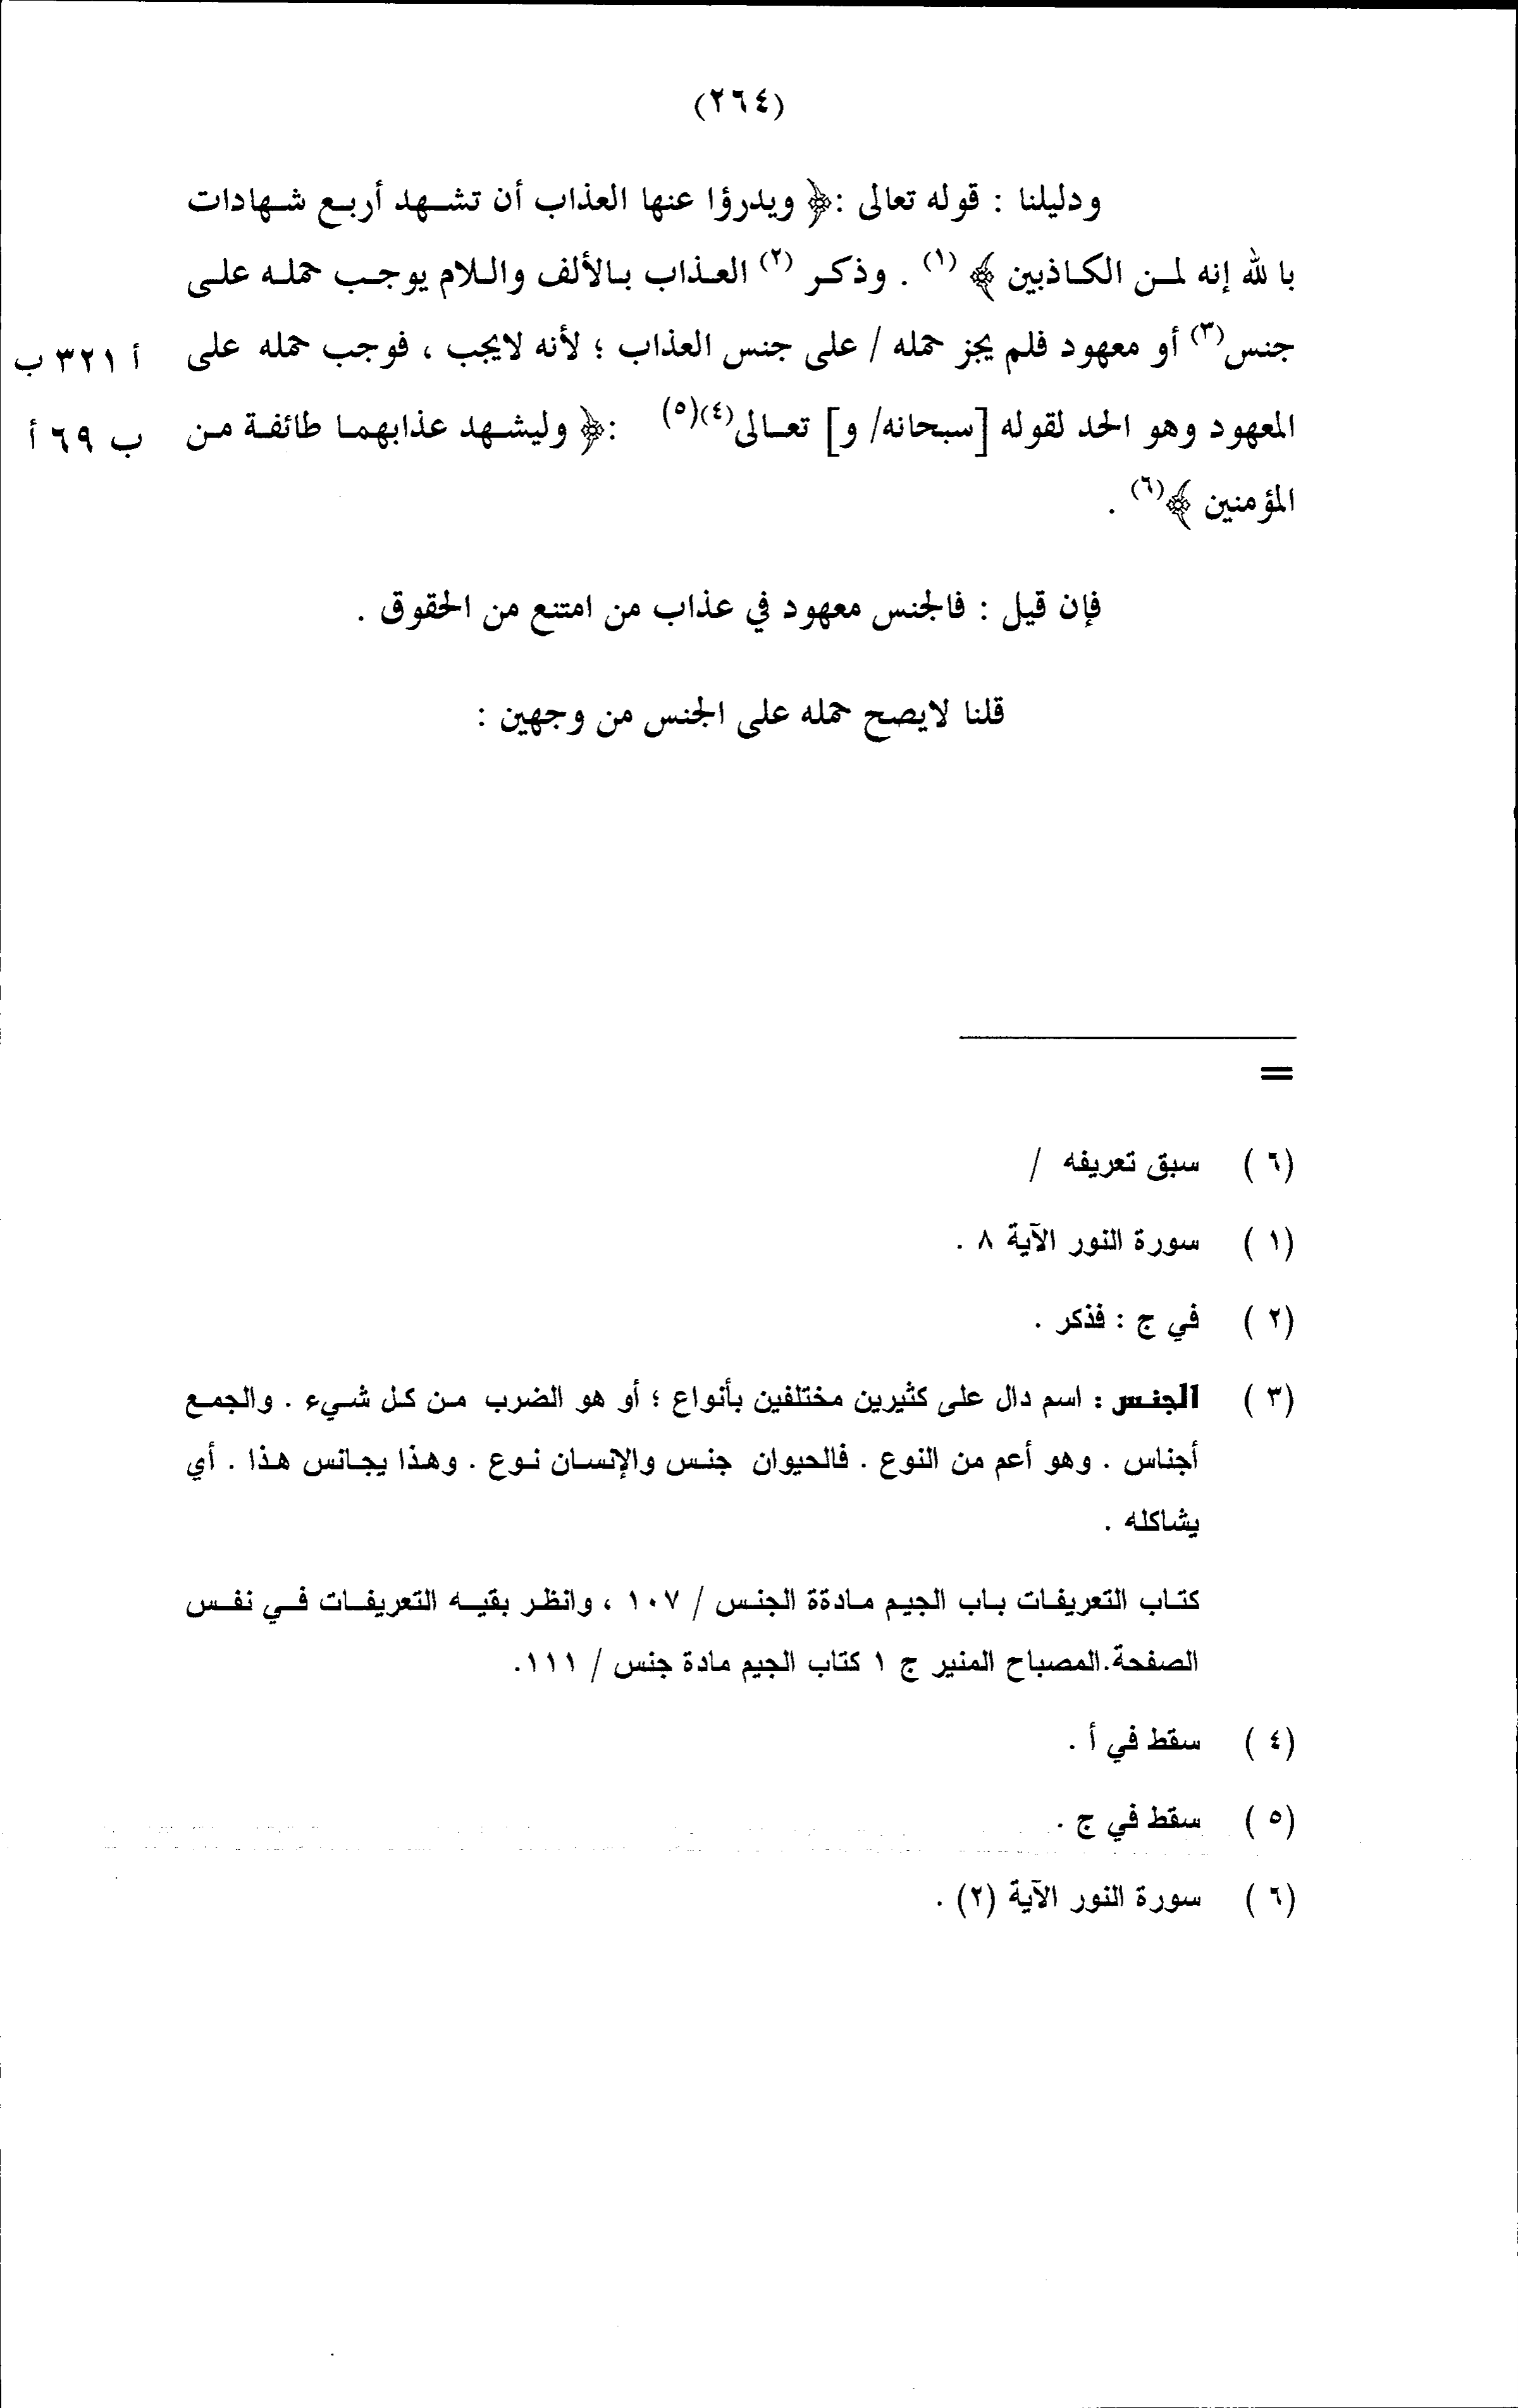 (٢٦٤)
ودليلنا : قوله تعالى :﴿ ويدرؤا عنها العذاب أن تشهد أربع شهادات
با لله إنه لمن الكاذبين ﴾ (١) . وذكر (٢) العذاب بالألف واللام يوجب حمله على
جنس(٣) أو معهود فلم يجز حمله / على جنس العذاب ؛ لأنه لايجب ، فوجب حمله على أ ٣٢١ ب
المعهود وهو الحد لقوله [سبحانه/ و] تعالى(٤)(٥) :﴿ وليشهد عذابهما طائفة من ب ٦٩ أ
المؤمنين ﴾(٦) .
فإن قيل : فالجنس معهود في عذاب من امتنع من الحقوق .
قلنا لايصح حمله على الجنس من وجهين :
=
(٦) سبق تعريفه /
(١) سورة النور الآية ٨ .
(٢) في ج : فذكر .
(٣) الجنس : اسم دال على كثيرين مختلفين بأنواع ؛ أو هو الضرب من كل شيء . والجمع
أجناس . وهو أعم من النوع . فالحيوان جنس والإنسان نوع . وهذا يجانس هذا . أي
يشاكله .
كتاب التعريفات باب الجيم مادةة الجنس / ١٠٧ ، وانظر بقيه التعريفات في نفس
الصفحة.المصباح المنير ج ١ كتاب الجيم مادة جنس / ١١١.
(٤) سقط في أ .
(٥) سقط في ج .
(٦) سورة النور الآية (٢) .